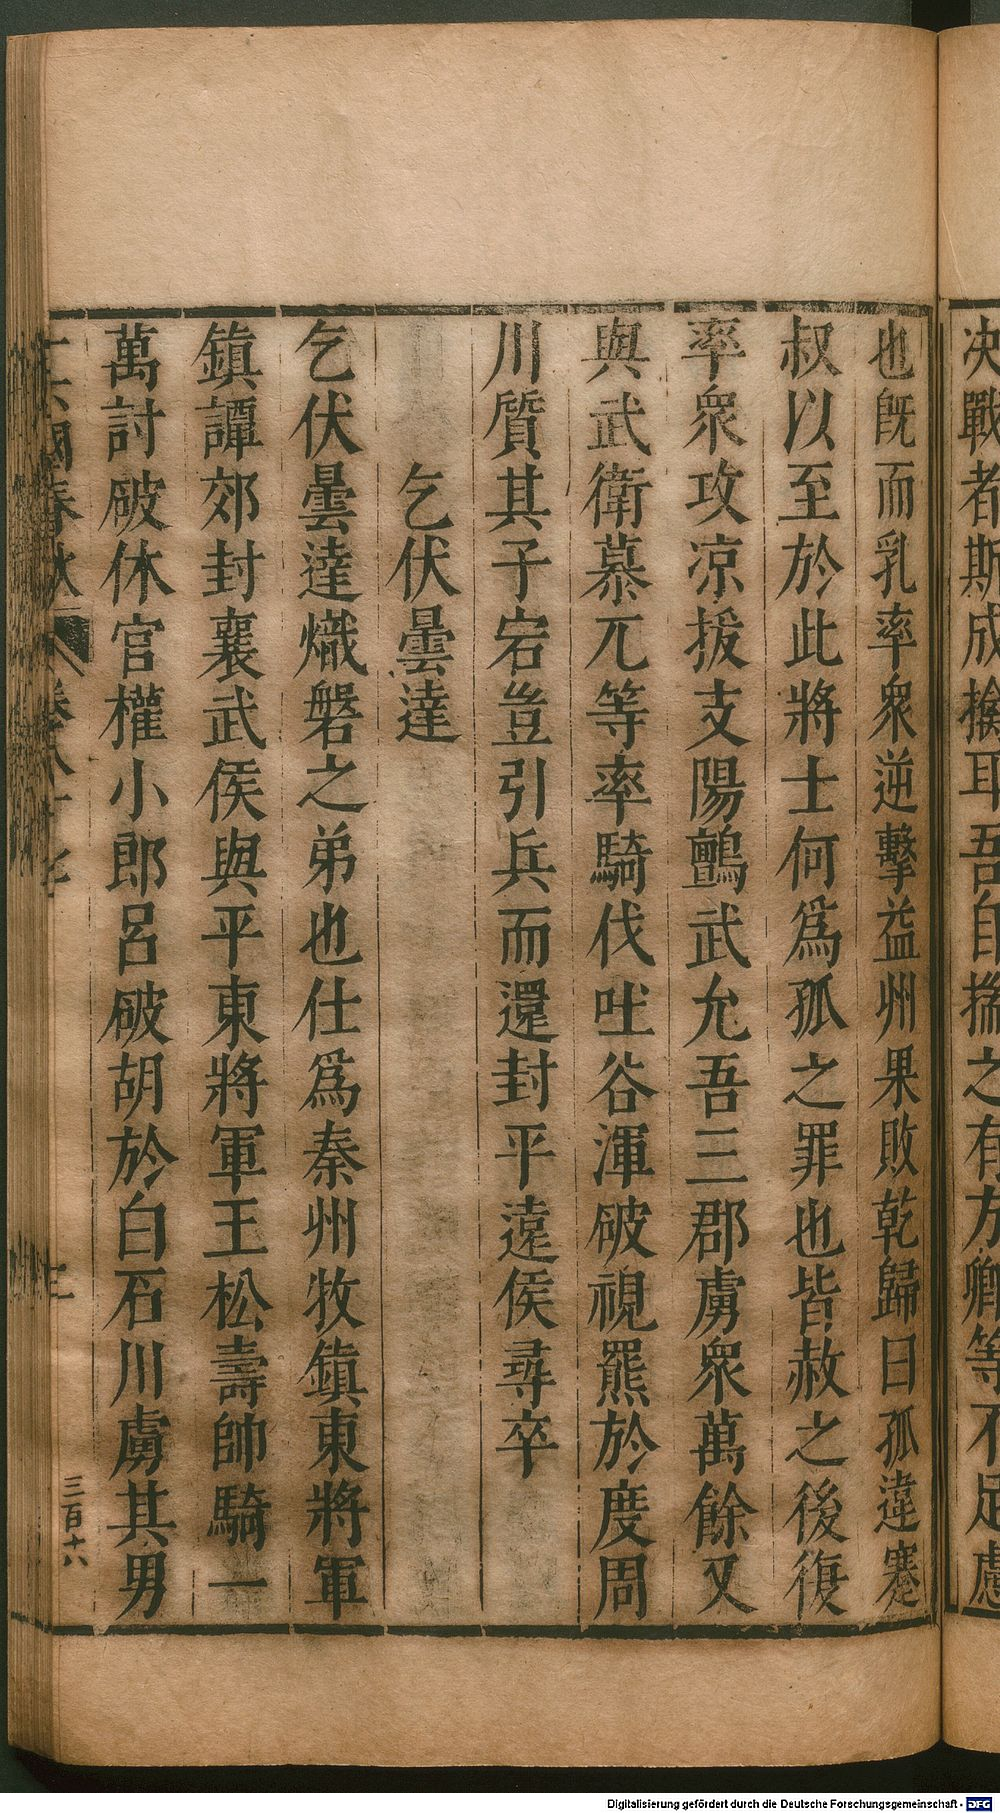 決戰者斯成擒耳吾自揣之有方卿等不足慮
也旣而乳率衆逆擊益州果敗乾歸曰孤違蹇
叔以至於此將士何爲孤之罪也皆赦之後復
率衆攻凉援支陽鸇武允吾三郡虜衆萬餘又
與武衛慕兀等率騎伐吐谷渾破視羆於度周
川質其子宕豈引兵而還封平遠侯尋卒
乞伏曇達
乞伏曇達熾磐之弟也仕爲秦州牧鎮東將軍
鎮譚郊封襄武侯與平東將軍王松壽帥騎一
萬討破休官權小郎呂破胡於白石川虜其男
十六國春秋 卷八十七
三百十八
Digitalisierung gefördert durch die Deutsche Forschungsgemeinschaft - DFG